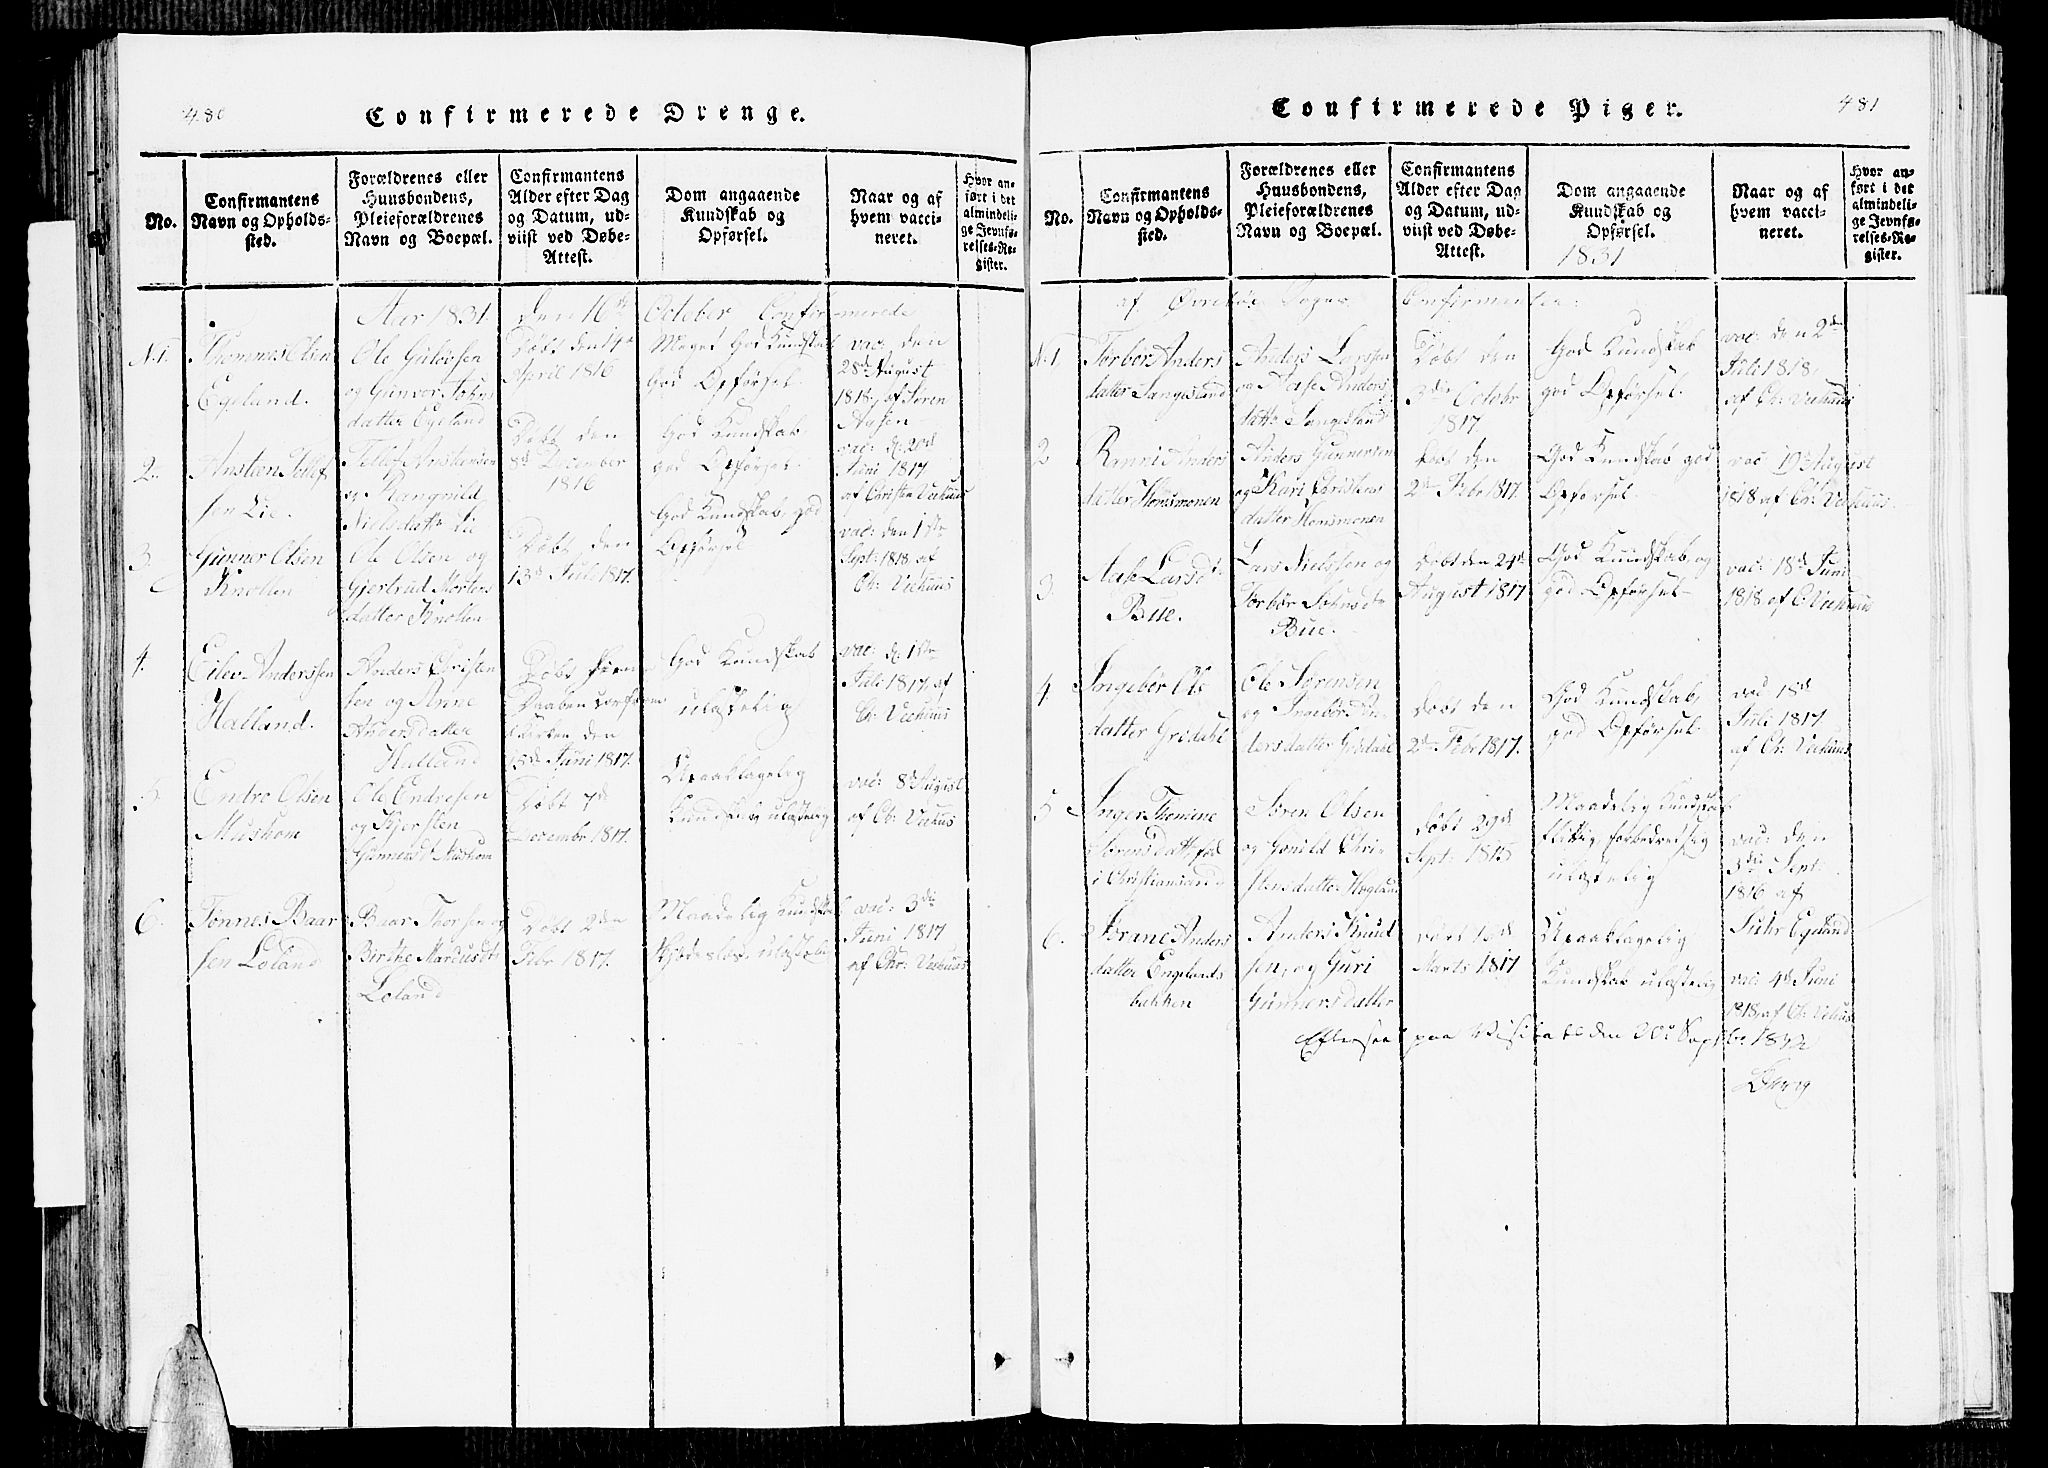 480
Confirmerede Drenge.
No.
Confirmantens
Navn og Opholds-
sted.
Forældrenes eller
Huusbondens,
Pleieforældrenes
Navn og Boepæl.
Confirmantens
Alder efter Dag
og Datum, ud-
viist ved Døbe-
Attest.
Dom angaaende
Kundskab og
Opførsel.
Naar og af
hvem vacci-
neret.
Hvor an-
ført i det
almindeli-
ge Jevnfø-
relses-Re-
gister.
Aar 1831 den 16de October Confirmerede
No 1.
Thommes Olsen
Egeland.
Ole Gulovsen
og Gunvor Johns
datter Egeland
Døbt den 14de
April 1816
Meget God Kundskab
God Opførsel
vac: den
28de August
1818, af Søren
2.
Austen Tellef
sen Lie.
Tellef Austensen
og Rangvild
Nielsdattr Lie
Døbt den
8de December
1816
God Kundskab
God Opførsel
vac: d. 20de
Juni 1817
af Christen Veehuus
3.
Gunner Olsen
Knollen
Ole Olsen og
Gjertrud Mortens
datter Knollen
Døbt den
13de Juli 1817.
God Kundskab, god
Opførsel
vac: den 1ste
Sept: 1818 af
Ch: Veehuus
4.
Eilev Anderssen
Halland.
Anders Christen
sen og Anne
Andersdatter
Halland
Døbt
Daaben
Kirken den
15de Juni 1817.
God Kundskab
ulastelig
vac: d. 1ste
Juli 1817 af
Ch: Veehuus
5.
Endre Olsen
Mushom
Ole Endresen
og Kjersten
Gunnersdt Mushom
Døbt 7de
Decembr 1817.
Upaaklagelig
Kundskab ulastelig
vac: 8de August
af Ch: Veehuus
6.
Tønnes Baar
sen Løland
Baar Thorsen og
Birthe Marcusdtr
Løland
Døbt 2den
Febr 1817.
Maadelig Kundskab
ulastelig
vac: 3die
Juni 1817
af Chr: Veehuus
481
Confirmerede Piger.
No.
Confirmantens
Navn og Opholds-
sted.
Forældrenes eller
Huusbondens,
Pleieforældrenes
Navn og Boepæl.
Confirmantens
Alder efter Dag
og Datum, ud-
viist ved Døbe-
Attest.
Dom angaaende
Kundskab og
Opførsel.
1831
Naar og af
hvem vacci-
neret.
Hvor an-
ført i det
almindeli-
ge Jevnfø-
relses-Re-
gister.
af Øvrebøe Sogns Confirmenter:
No 1
Torbør Anders
datter Langesland
Anders Larssen
og Aase Anders
datter Langesland
Døbt den
3die Octobr
1817
God Kundskab
god Opførsel.
vac: den 2den
Juli 1818
af Ch: Veehuus
2
Ranni Anders
datter Homsmonen
Anders Gunnersen
og Kari Christens
datter Homsmonen
Døbt den
2den Febr 1817.
God Kundskab god
Opførsel.
vac: 19de August
1818 af Ch: Veehuus.
3.
Aase Larsdt.
Bue.
Lars Nielsen og
Torbør Johnsdtr
Bue.
Døbt den 24de
August 1817
God Kundskab, og
god Opførsel
vac: 18de Juni
1818 af C: Veehuus
4.
Ingebør Ols
datter Gredahl
Ole Sørensen
og Ingebør
dersdatter Grødahl
Døbt den
2den Febr 1817.
God Kundskab,
god Opførsel
vac: 18de
Juli 1817.
af Ch: Veehuus
5
Inger Thomine
Sørensdattr fød
i Christiansand
Søren Olsen
og Gunild Chri-
stensdatter
Døbt 29de
Sept: 1815
Maadelig Kundskab
flittig forbedret sig
ulastelig
vac: den
3die Sept:
1816 af
Suhr Egeland
6.
Jørane Anders
datter Engelands
bakken
Anders Knud
sen, og Guri
Gunnersdatter
Døbt 16de
Marts 1817
Upaaklagelig
Kundskab ulastelig
vac: 4de Juni
1818, af Ch: Vehuus
Efterseet paa Visitats den 20de Septbr